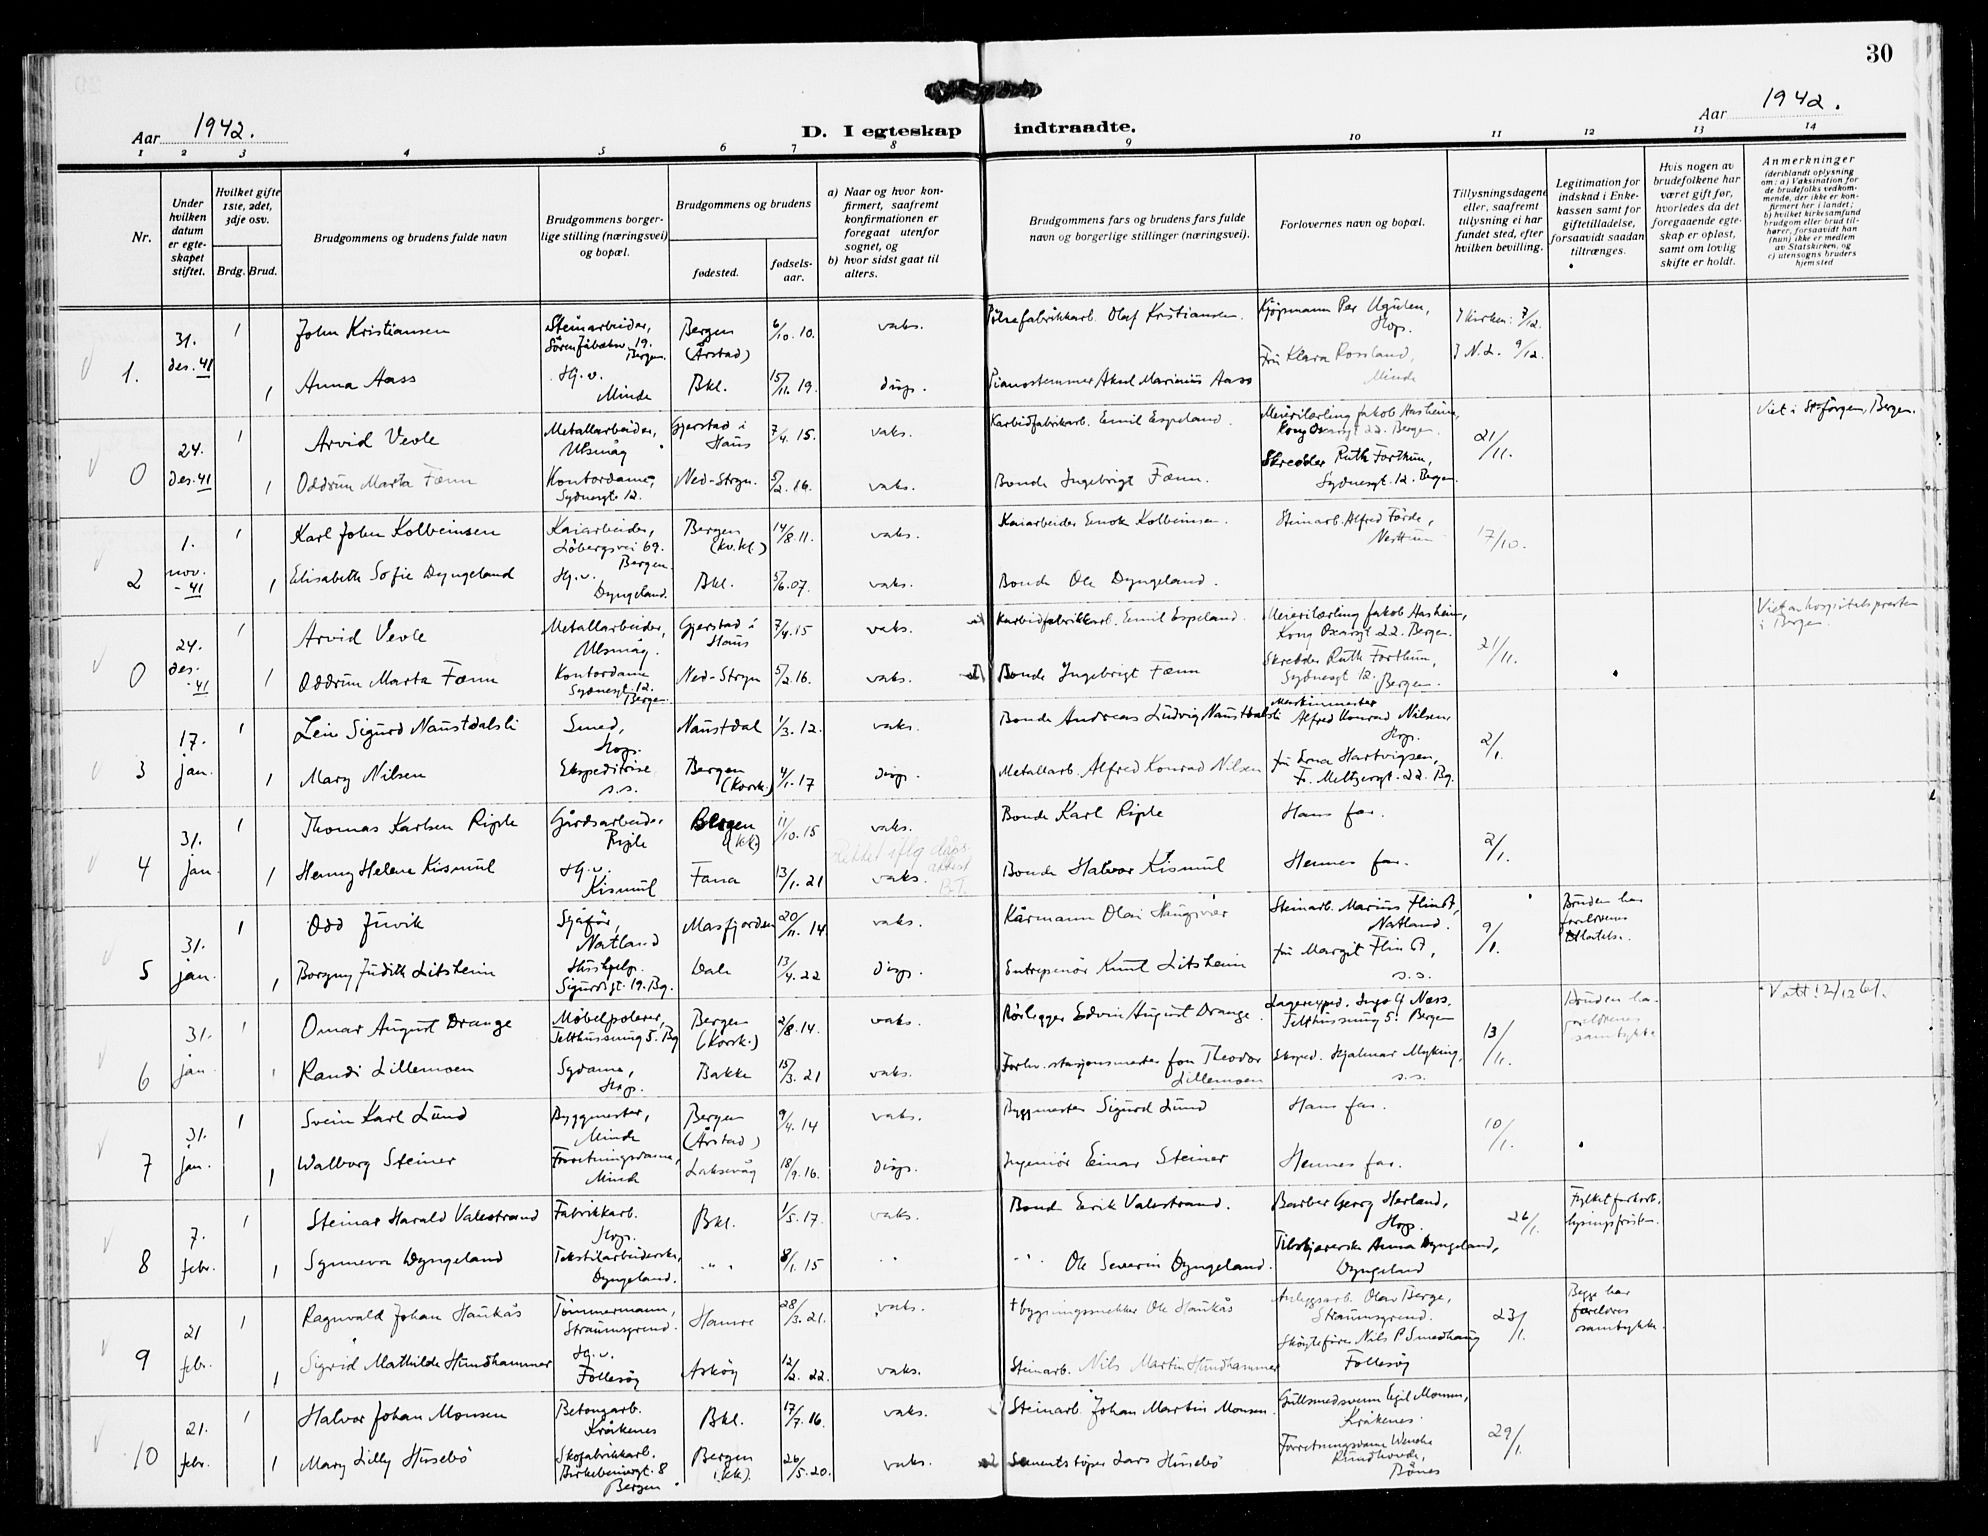 30
Aar 1942.
D. I egteskap indtraadte.
Aar 1942.
1 2 3 4 5 6 7 8 9 10 11 12 13 14
Nr.
Under hvilken datum er egteskapet stiftet.
Hvilket gifte 1ste, 2det, 3dje osv.
Brdg. Brud.
Brudgommens og brudens fulde navn
Brudgommens borgerlige stilling (næringsvei) og bopæl.
Brudgommens og brudens
fødested.
fødselsaar.
a) Naar og hvor konfirmert, saafremt konfirmationen er foregaat utenfor sognet, og
b) hvor sidst gaat til alters.
Brudgommens fars og brudens fars fulde navn og borgerlige stillinger (næringsvei).
Forlovernes navn og bopæl.
Tillysningsdagene eller, saafremt tillysning ei har fundet sted, efter hvilken bevilling.
Legitimation for indskud i Enkekassen samt for giftetilladelse, forsaavidt saadan tiltrænges.
Hvis nogen av brudefolkene har været gift før, hvorledes da det foregaaende egteskap er opløst, samt om lovlig skifte er holdt.
Anmerkninger
(deriblandt oplysning om: a) Vaksination for de brudefolks vedkommende, der ikke er konfirmert her i landet; b) hvilket kirkesamfund brudgom eller brud tilhører, forsaavidt han (hun) ikke er medlem av Statskirken, og c) utensogns bruders hjemsted
1. 31. des. 41 1 John Kristiansen Steinarbeider, 19. Bergen. Bergen (Årstad) 6/10. 10. vaks. Pølsefabrikkarb. Olaf Kristiansen. Kjøpmann Per Ugulen, Hop. I kirken: 7/12.
1 Anna Aass Hj.v. Minde Bkl. 15/11. 19. disp. Pianostemmer Aksel Marinius Aass Fru Klara Rossland, Minde I N.L. 9/12.
0 24. des. 41 1 Arvid Vevle Metallarbeider, Ulsmåg Gjerstad i Haus 7/4. 15. vaks. Karbidfabrikkarb. Emil Espeland. Meierilærling Jakob Aasheim, Kong Oscarsgt 22. Bergen. 21/11. Viet i St. Jørgen, Bergen.
1 Oddrun Marta Fænn Kontordame, Sydnesgt. 12. Ned-Stryn. 5/2. 16. vaks. Bonde Ingebrigt Fænn. Skredder Ruth Forthun, Sydnesgt. 12. Bergen.
2 1. nov. - 41 1 Karl John Kolbeinsen Kaiarbeider, Løbergsvei 69. Bergen. Bergen (kv.kl.) 14/8. 11. vaks. Kaiarbeider Enok Kolbeinsen. Steinarb. Alfred Førde, Nesttun 17/10.
1 Elisabeth Sofie Dyngeland Hj.v. Dyngeland. Bkl. 5/6. 07. vaks. Bonde Ole Dyngeland.
0 24. des. - 41 1 Arvid Vevle Metallarbeider, Ulsmåg. Gjerstad i Haus 7/4. 15 vaks. Karbidfabrikkarb. Emil Espeland. Meierilærling Jakob Aasheim, Kong Oscarsgt 22. Bergen. 21/11. Viet av hospitalspresten i Bergen.
1 Oddrun Marta Fænn Kontordame Sydnesgt. 12. Bergen Ned-Stryn 5/2. 16. vaks. Bonde Ingebrigt Fænn Skredder Ruth Forthun, Sydnesgt 12. Bergen.
3 17. jan. 1 Leiv Sigurd Naustdalsli Smed, Hop. Naustdal 1/3. 12. vaks. Bonde Andreas Ludvig Naustdalsli Maskinmester Alfred Konrad Nilsen, Hop. 2/1.
1 Mary Nilsen Ekspeditrise s.s. Bergen (Korsk.) 4/1. 17 disp. Metallarb. Alfred Konrad Nilsen Fru Erna Hartvigsen, F. Meltzersgt. 22. Bg.
4 31. jan. 1 Thomas Karlsen Riple Gårdsarbeider Riple Bergen (kk) 11/10. 15 vaks. Bonde Karl Riple Hans far. 2/1.
Rettet iflg dåpsattest
1 Henny Helene Kismul Hj.v. Kismul Fana 13/1. 21 vaks. Bonde Halvor Kismul Hennes far.
5 31. jan. 1 Odd Juvik Sjåfør, Natland Masfjorden 20/11. 14 vaks. Kårmann Olai Haugsvær Steinarb. Marius Flindt, Natland. 9/1. Bruden har foreldrenes tillatelse.
1 Borgny Judith Litsheim Hushjelp. Sigurdsgt. 19. Bg. Dale 13/4. 22 disp. Entreprenør Knut Litsheim Fru Margit Flindt, s.s.
6 31. jan. 1 Omar August Drange Møbelpolerer, Telthussmug 5. Bg Bergen (Korsk.) 2/8. 14. vaks. Rørlegger Edvin August Drange. Lagereksped. Inge G Næss. Telthussmug 5. Bergen 13/11. Bruden har foreldrenes samtykke Vatt. 12/12 61.
1 Randi Lillemoen Sydame, Hop. Bakke 15/3. 21 vaks. Forhv. stasjonsmester Jon Theodor Lillemoen Eksped. Hjalmar Myking, s.s.
7 31. jan. 1 Svein Karl Lund Byggmester, Minde Bergen (Årstad) 9/4. 14 vaks. Byggmester Sigurd Lund Hans far. 10/1.
1 Walborg Steiner Forretningsdame, Minde Laksevåg 18/9. 16. disp. Ingeniør Einar Steiner Hennes far.
8 7. febr. 1 Steinar Harald Valestrand Fabrikkarb. Hop. Bkl. 1/5. 17. vaks. Bonde Eirik Valestrand. Barber Georg Herland, Hop. 26/1. Fylket forkort. lysingsfristen.
1 Synneva Dyngeland Tekstilarbeiderske, Dyngeland. " " 8/1. 15 " " " Ole Severin Dyngeland. Tilskjærerske Anna Dyngeland, Dyngeland
9 21 febr. 1 Ragnvald Johan Haukås Tømmermann, Straumsgrend. Hamre 28/3. 21. vaks. † bygningssnekker Ole Haukås Anleggsarb. Olav Berge, Straumsgrend. 23/1. Begge har foreldres samtykke.
1 Sigrid Mathilde Hundhammer Hj.v. Follesøy Askøy 12/2. 22. vaks. Steinarb. Nils Martin Hundhammer Skøytefører Nils P Smedhaug Follesøy
10 21. febr. 1 Halvor Johan Monsen Betongarb. Kråkenes Bkl. 17/7. 16. vaks. Steinarb. Johan Martin Monsen. Gullsmedsvenn Egil Monsen, Kråkenes 29/1.
1 Mary Lilly Husebø Skofabrikkarb. Birkebeinersgt. 8 Bergen Bergen (kk). 26/5. 20. vaks. Sementstøper Lars Husebø Forretningsdame Wenche Rundhovde, Bønes